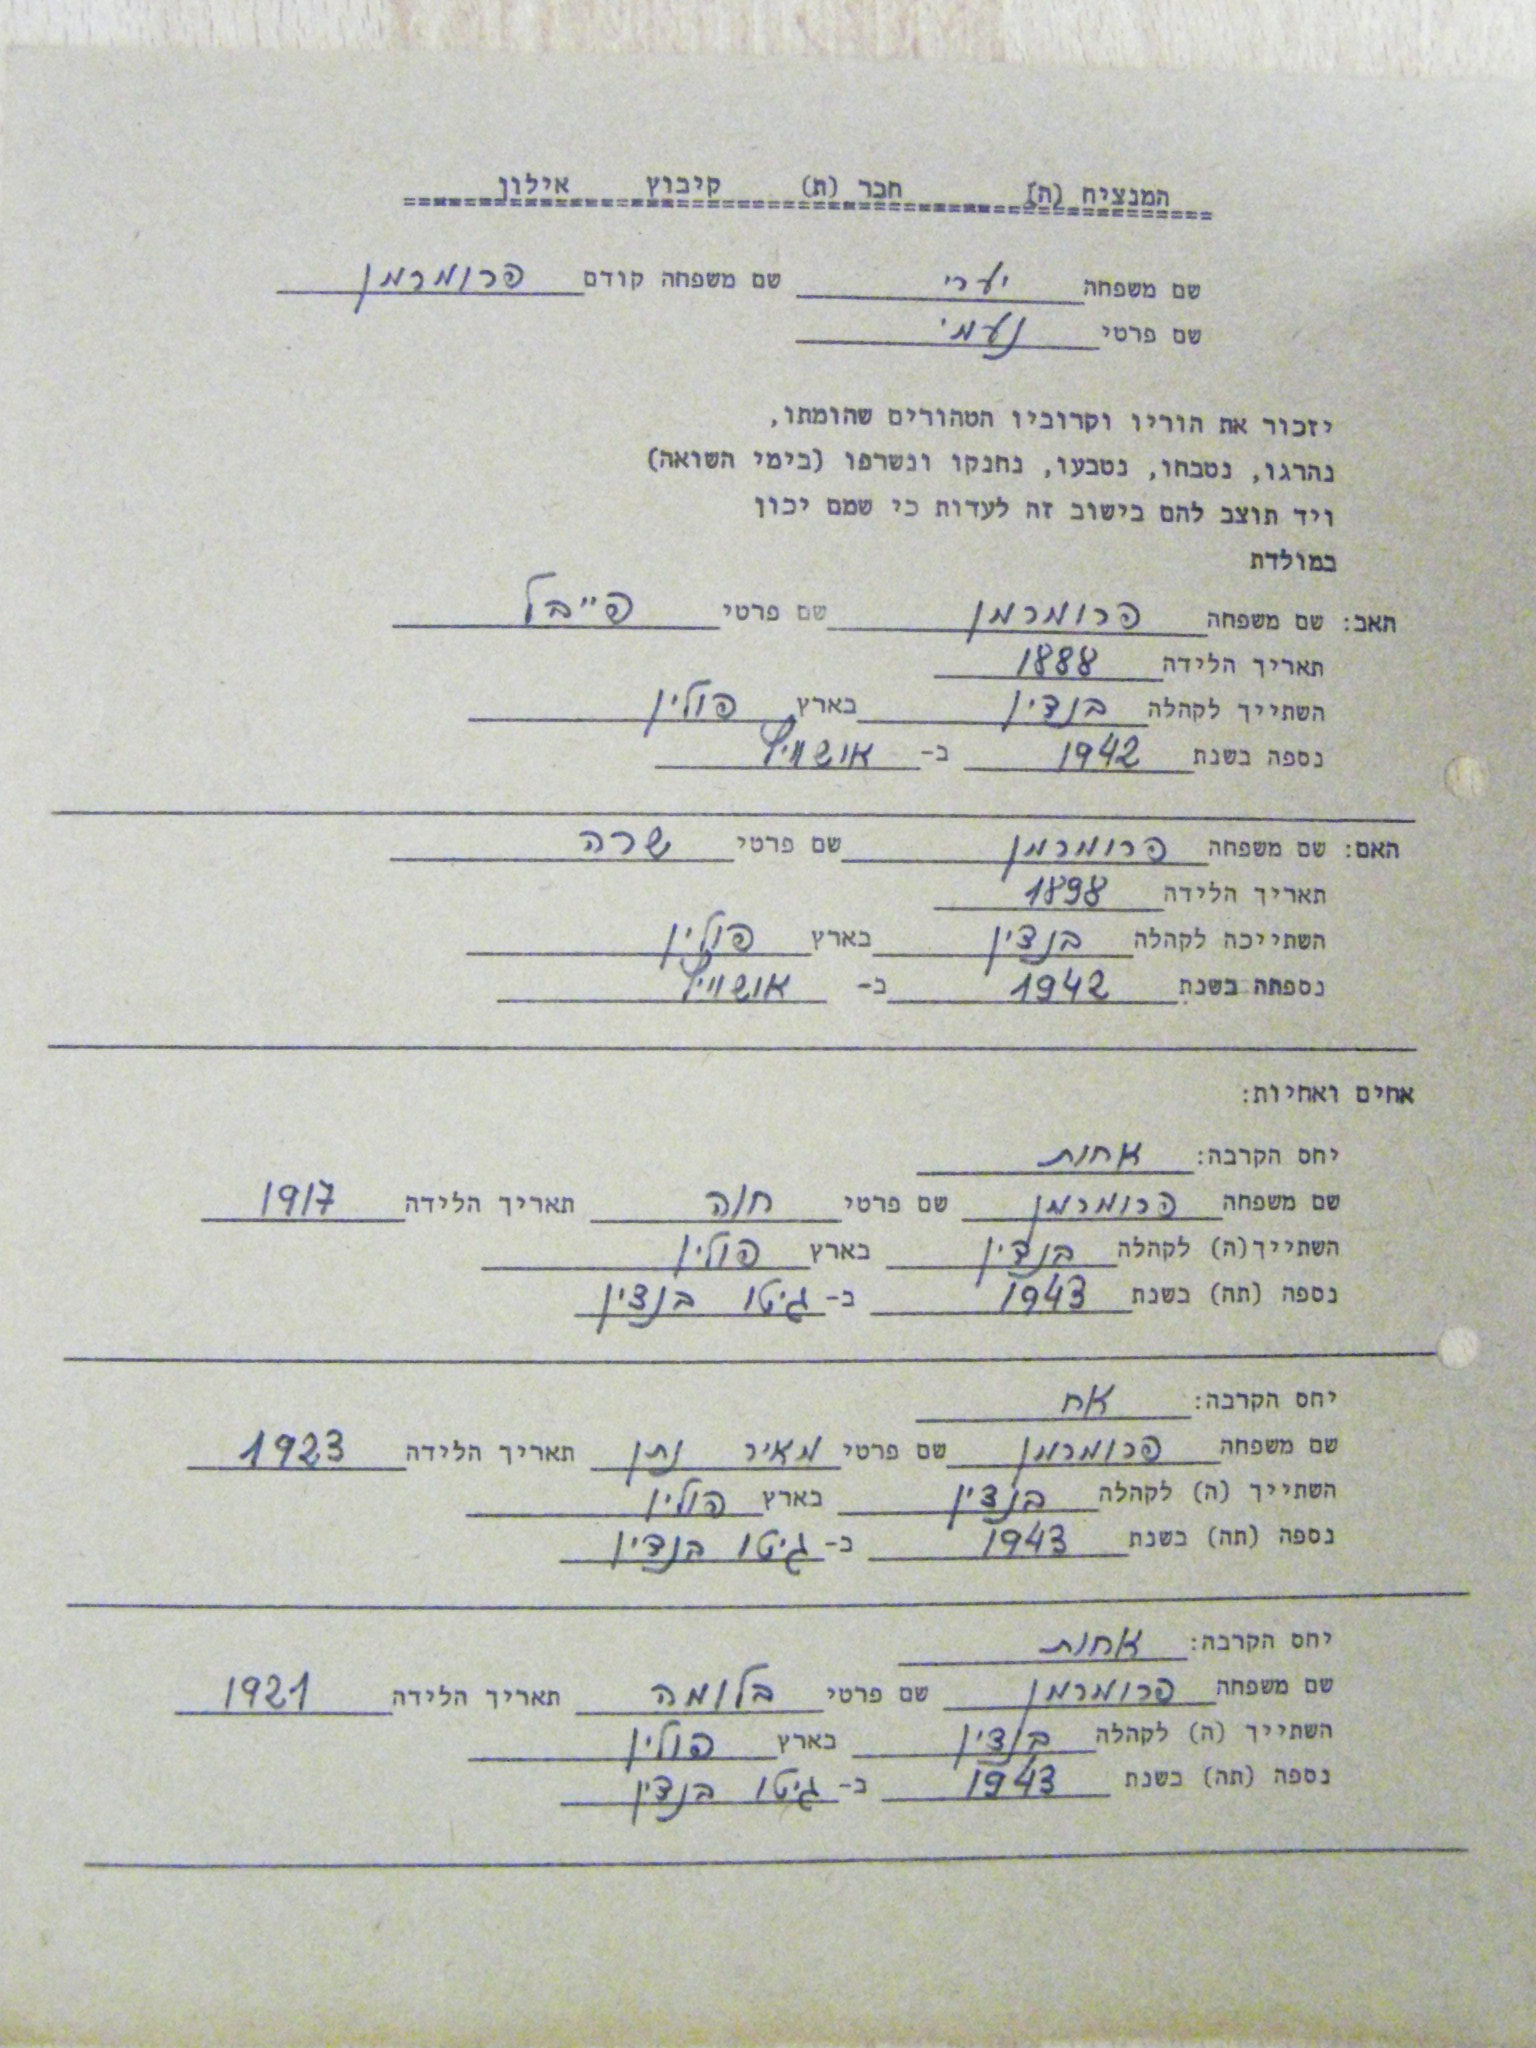 המנציח (ה) חבר (ת) קיבוץ אילון
שם משפחה יערי שם משפחה קודם פרומרמן
שם פרטי נעמי
יזכור את הוריו וקרוביו הטהורים שהומתו,
נהרגו, נטבחו, נטבעו, נחנקו ונשרפו (בימי השואה)
ויד תוצב להם בישוב זה לעדות כי שמם יכון
במולדת
האב: שם משפחה פרומרמן שם פרטי פייבל
תאריך הלידה 1888
השתייך לקהלה בנדין בארץ פולין
נספה בשנת 1942 ב- אושוויץ
האם: שם משפחה פרומרמן שם פרטי שרה
תאריך הלידה 1898
השתייכה לקהלה בנדין בארץ פולין
נספתה בשנת 1942 ב- אושוויץ
אחים ואחיות:
יחס הקרבה: אחות
שם משפחה פרומרמן שם פרטי חנה תאריך הלידה 1917
השתייך(ה) לקהלה בנדין בארץ פולין
נספה (תה) בשנת 1943 ב- גיטו בנדין
יחס הקרבה: אח
שם משפחה פרומרמן שם פרטי מאיר נתן תאריך הלידה 1923
השתייך (ה) לקהלה בנדין בארץ פולין
נספה (תה) בשנת 1943 ב- גיטו בנדין
יחס הקרבה: אחות
שם משפחה פרומרמן שם פרטי בלומה תאריך הלידה 1921
השתייך (ה) לקהלה בנדין בארץ פולין
נספה (תה) בשנת 1943 ב- גיטו בנדין